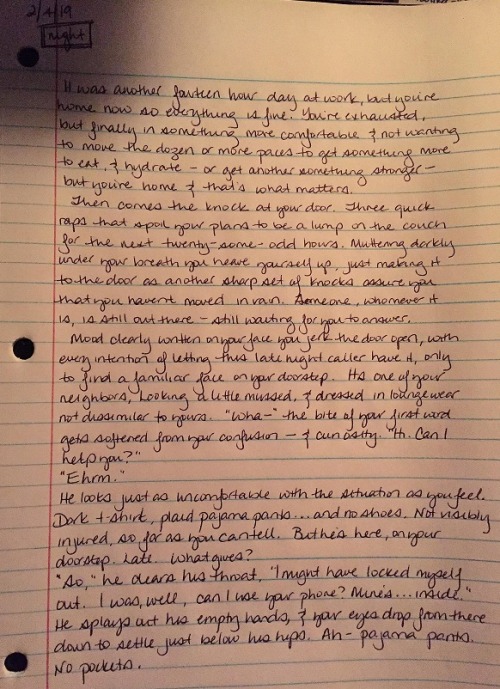 2/4/19
night
It was another fourteen hour day at work, but you're
home now so everything is fine. You're exhausted,
but finally in something more comfortable & not wanting
to move the dozen or more paces to get something more
to eat, & hydrate - or get another something stronger -
but you're home & that's what matters.
Then comes the knock at your door. Three quick
raps that spoil your plans to be a lump on the couch
for the next twenty-some-odd hours. Muttering darkly
under your breath you heave yourself up, just making it
to the door as another sharp set of knocks assure you
that you haven't moved in vain. Someone, whomever it
is, is still out there - still waiting for you to answer.
Mood clearly written on your face you jerk the door open, with
every intention of letting this late night caller have it, only
to find a familiar face on your doorstep. It's one of your
neighbors, looking a little mussed, & dressed in loungewear
not dissimilar to yours. "Wha-" the bite of your first word
gets softened from your confusion - & curiosity. "Hi. Can I
help you?"
"Ehrm."
He looks just as uncomfortable with the situation as you feel.
Dark t-shirt, plaid pajama pants... and no shoes. Not visibly
injured, so far as you can tell. But he's here, on your
doorstep. Late. What gives?
"So," he clears his throat, "I might have locked myself
out. I was, well, can I use your phone? Mine's... inside."
He splays out his empty hands, & your eyes drop from there
down to settle just below his hips. Ah - pajama pants.
No pockets.